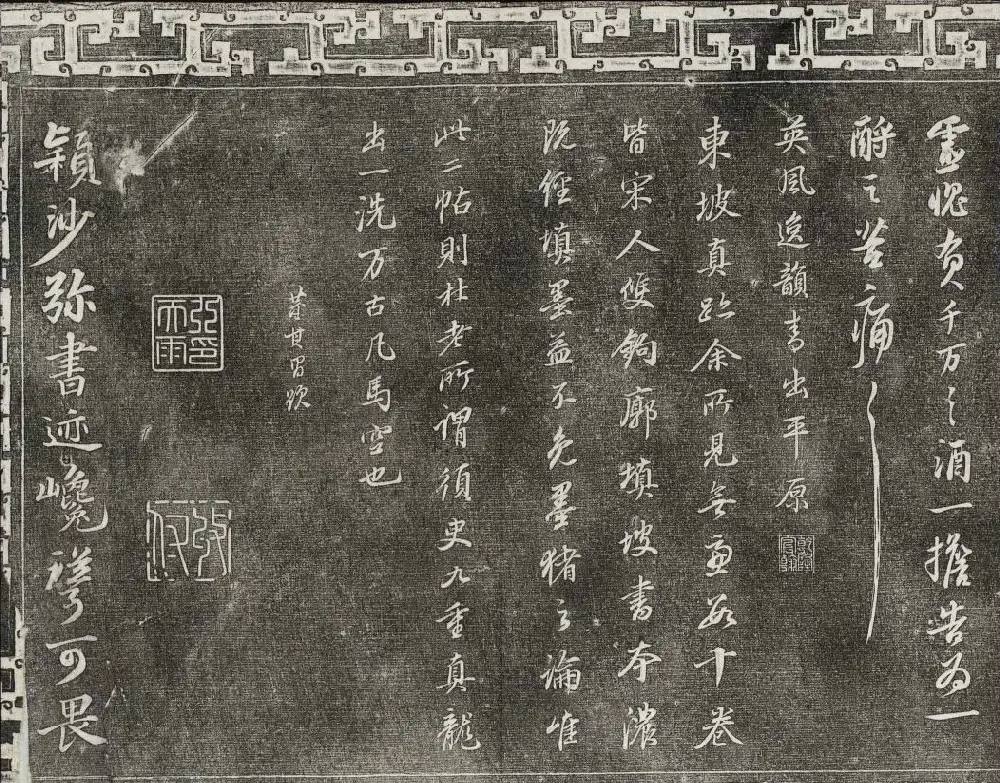 靈愧負千万々酒一擔告为一
酹之苦痛々
英風逸韻高出平原
東坡真跡余所見無慮數十卷
皆宋人雙鉤廓填坡書本濃
既經填墨益不免墨猪之論唯
此二帖則杜老所謂須臾九重真龍
出一洗万古凡馬空也
董其昌題
穎沙弥書迹巉可畏